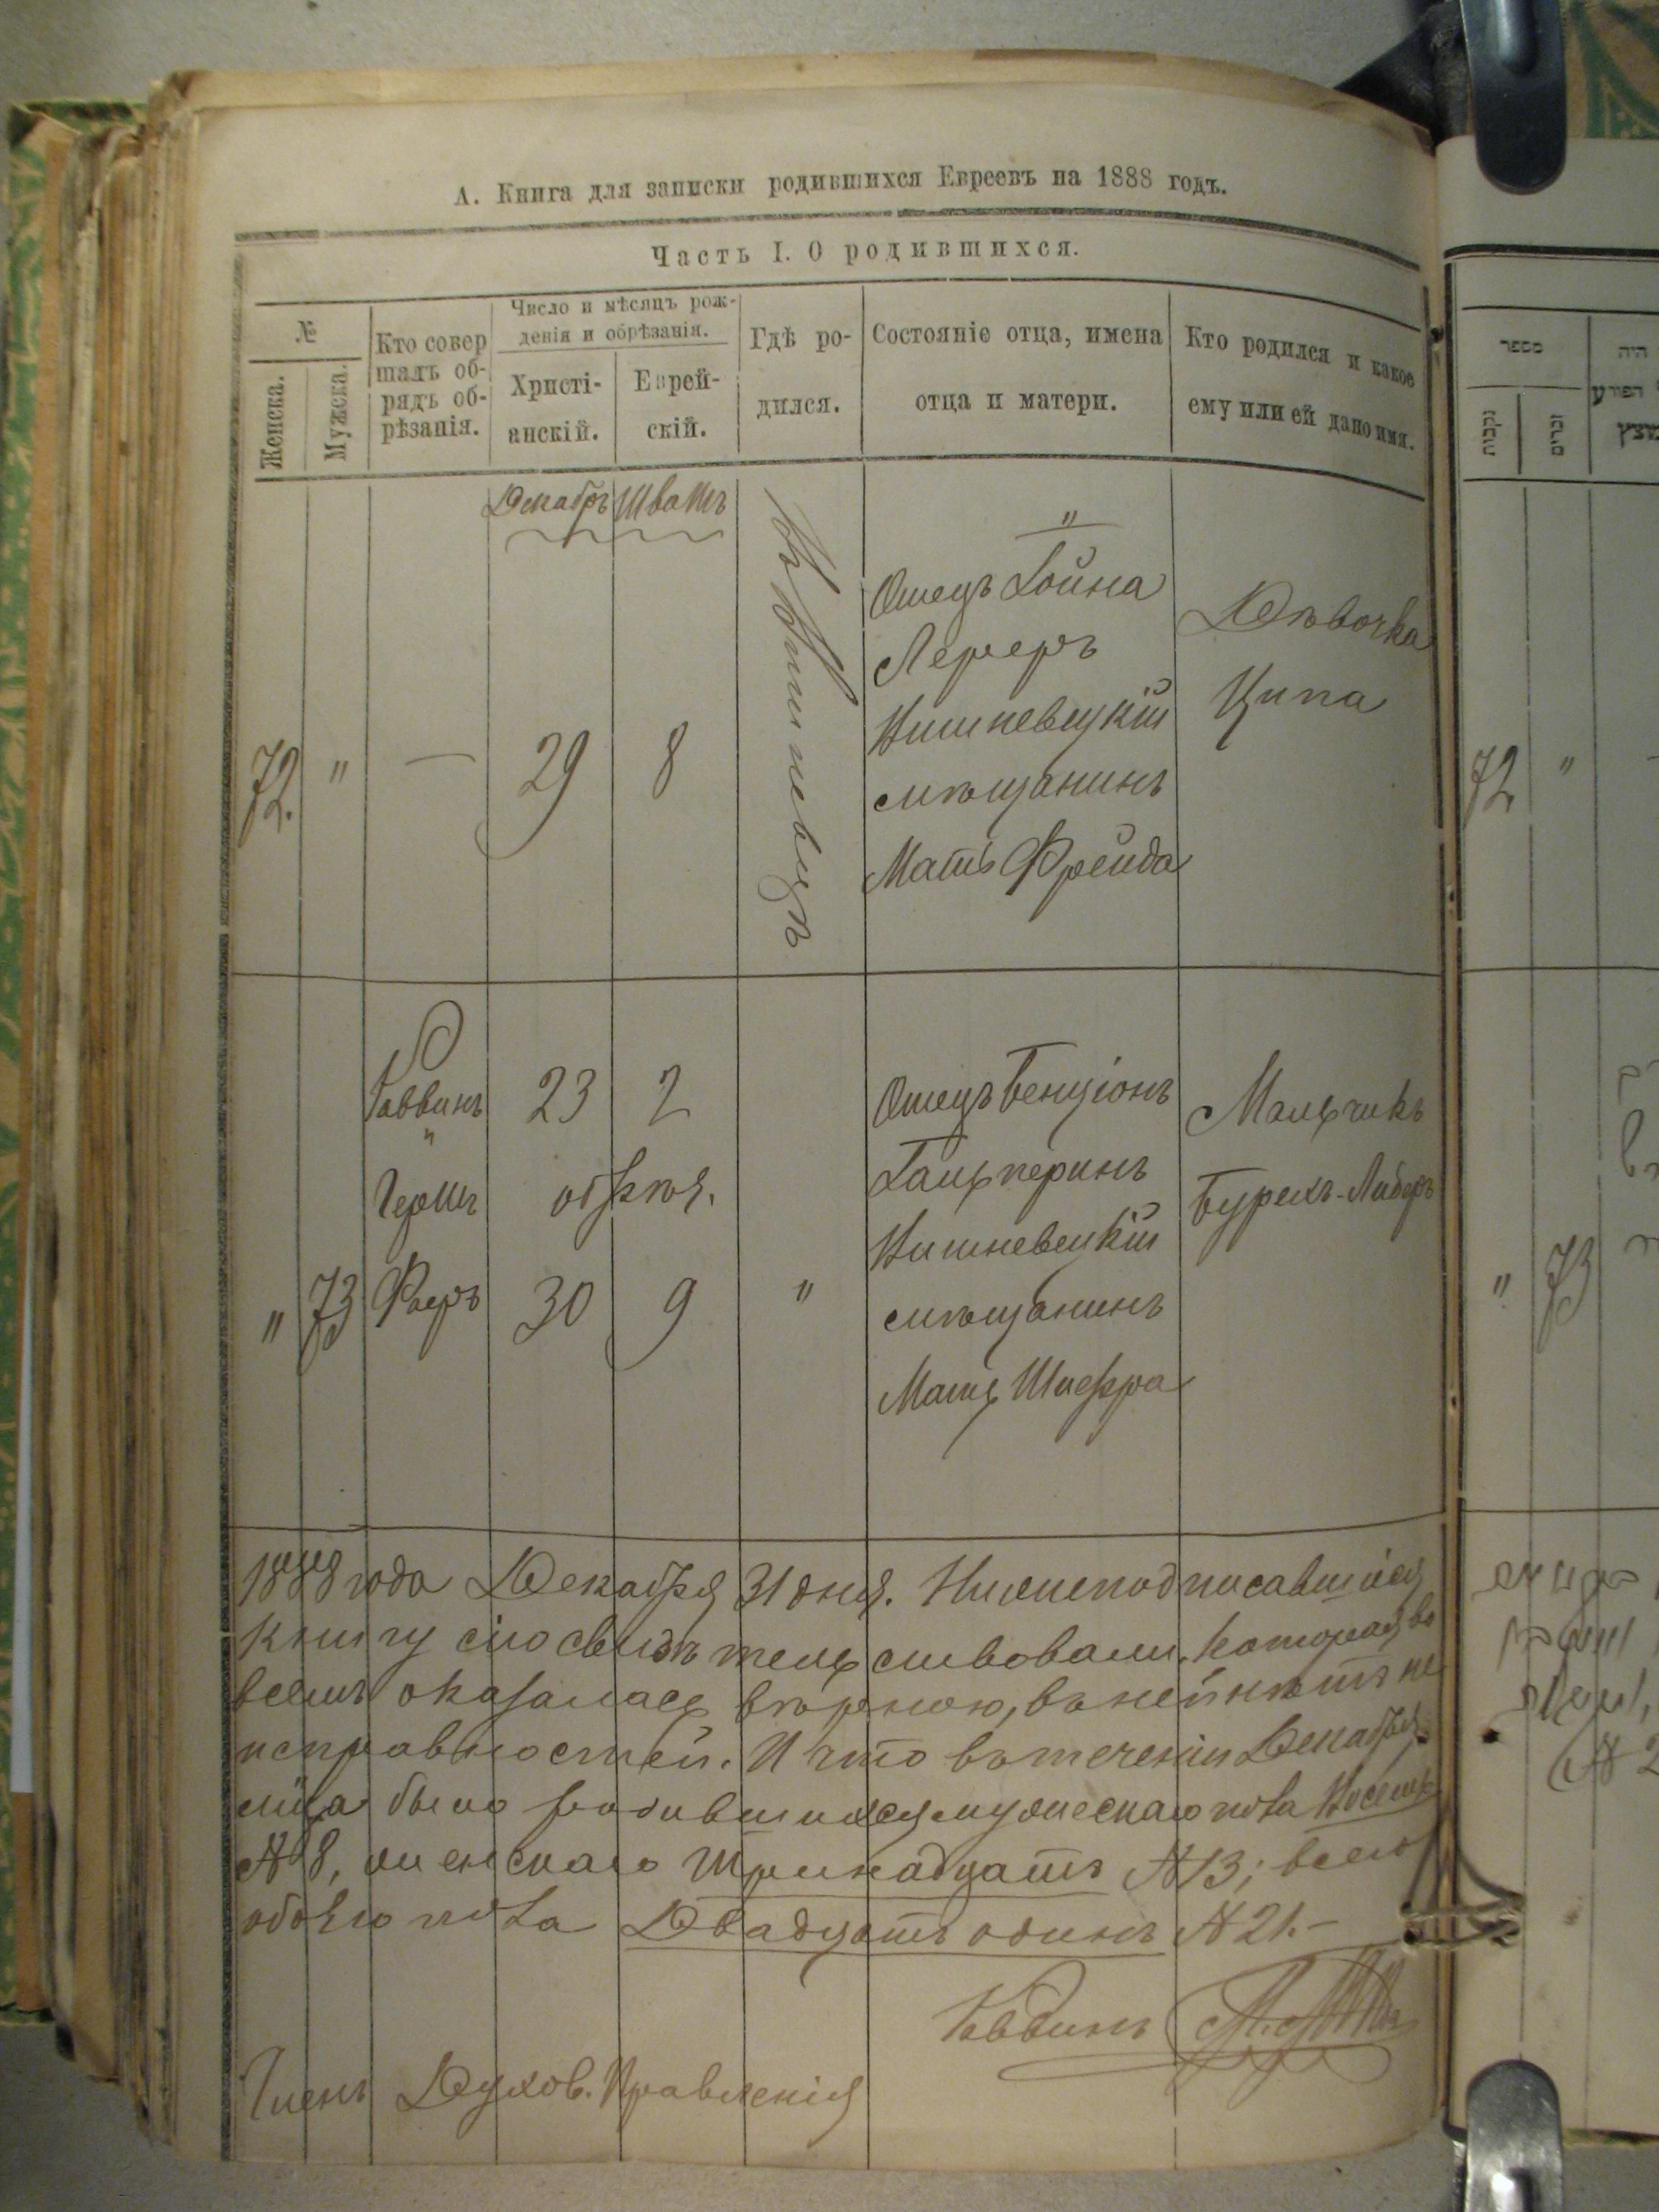 А. Книга для записки родившихся Евреевъ на 1888 годъ.
Часть I. О родившихся.
№
Женска.
Мужска.
Кто совер
шалъ об-
рядъ об-
рѣзанія.
Число и мѣсяцъ рож-
денія и обрѣзанія.
Христі-
анскій.
Еврей-
скій.
Гдѣ ро-
дился.
Состояніе отца, имена
отца и матери.
Кто родился и какое
ему или ей дано имя.
Декабрь
Шватъ
72.
"
—
29
8
въ Вишневцѣ
"
Отецъ Гойна
Лернеръ
Вишневецкій
мѣщанинъ
Мать Фрейда
Дѣвочка
Ципа
"
73
Раввинъ
"
Герш
Фаеръ
23
2
обрѣз.
30
9
"
Отецъ Бенціонъ
Гальперинъ
Вишневецкій
мѣщанинъ
Мать Шифра
Мальчикъ
Бурехъ-Либеръ
1888 года Декабря 31 дня. Нижеподписавшіеся
книгу сію свидѣтельствовали, которая во
всемъ оказалась вѣрною, въ ней нѣтъ не
исправностей. И что въ теченіи Декабря
м-ца было родившихся мужескаго пола Восемь
№ 8, женскаго Тринадцать № 13; всего
обоего пола Двадцать одинъ № 21.—
Раввинъ
Членъ Духов. Правленія
מספר
נקבות
זכרים
היה
הפורע
מוצץ
72
"
"
73